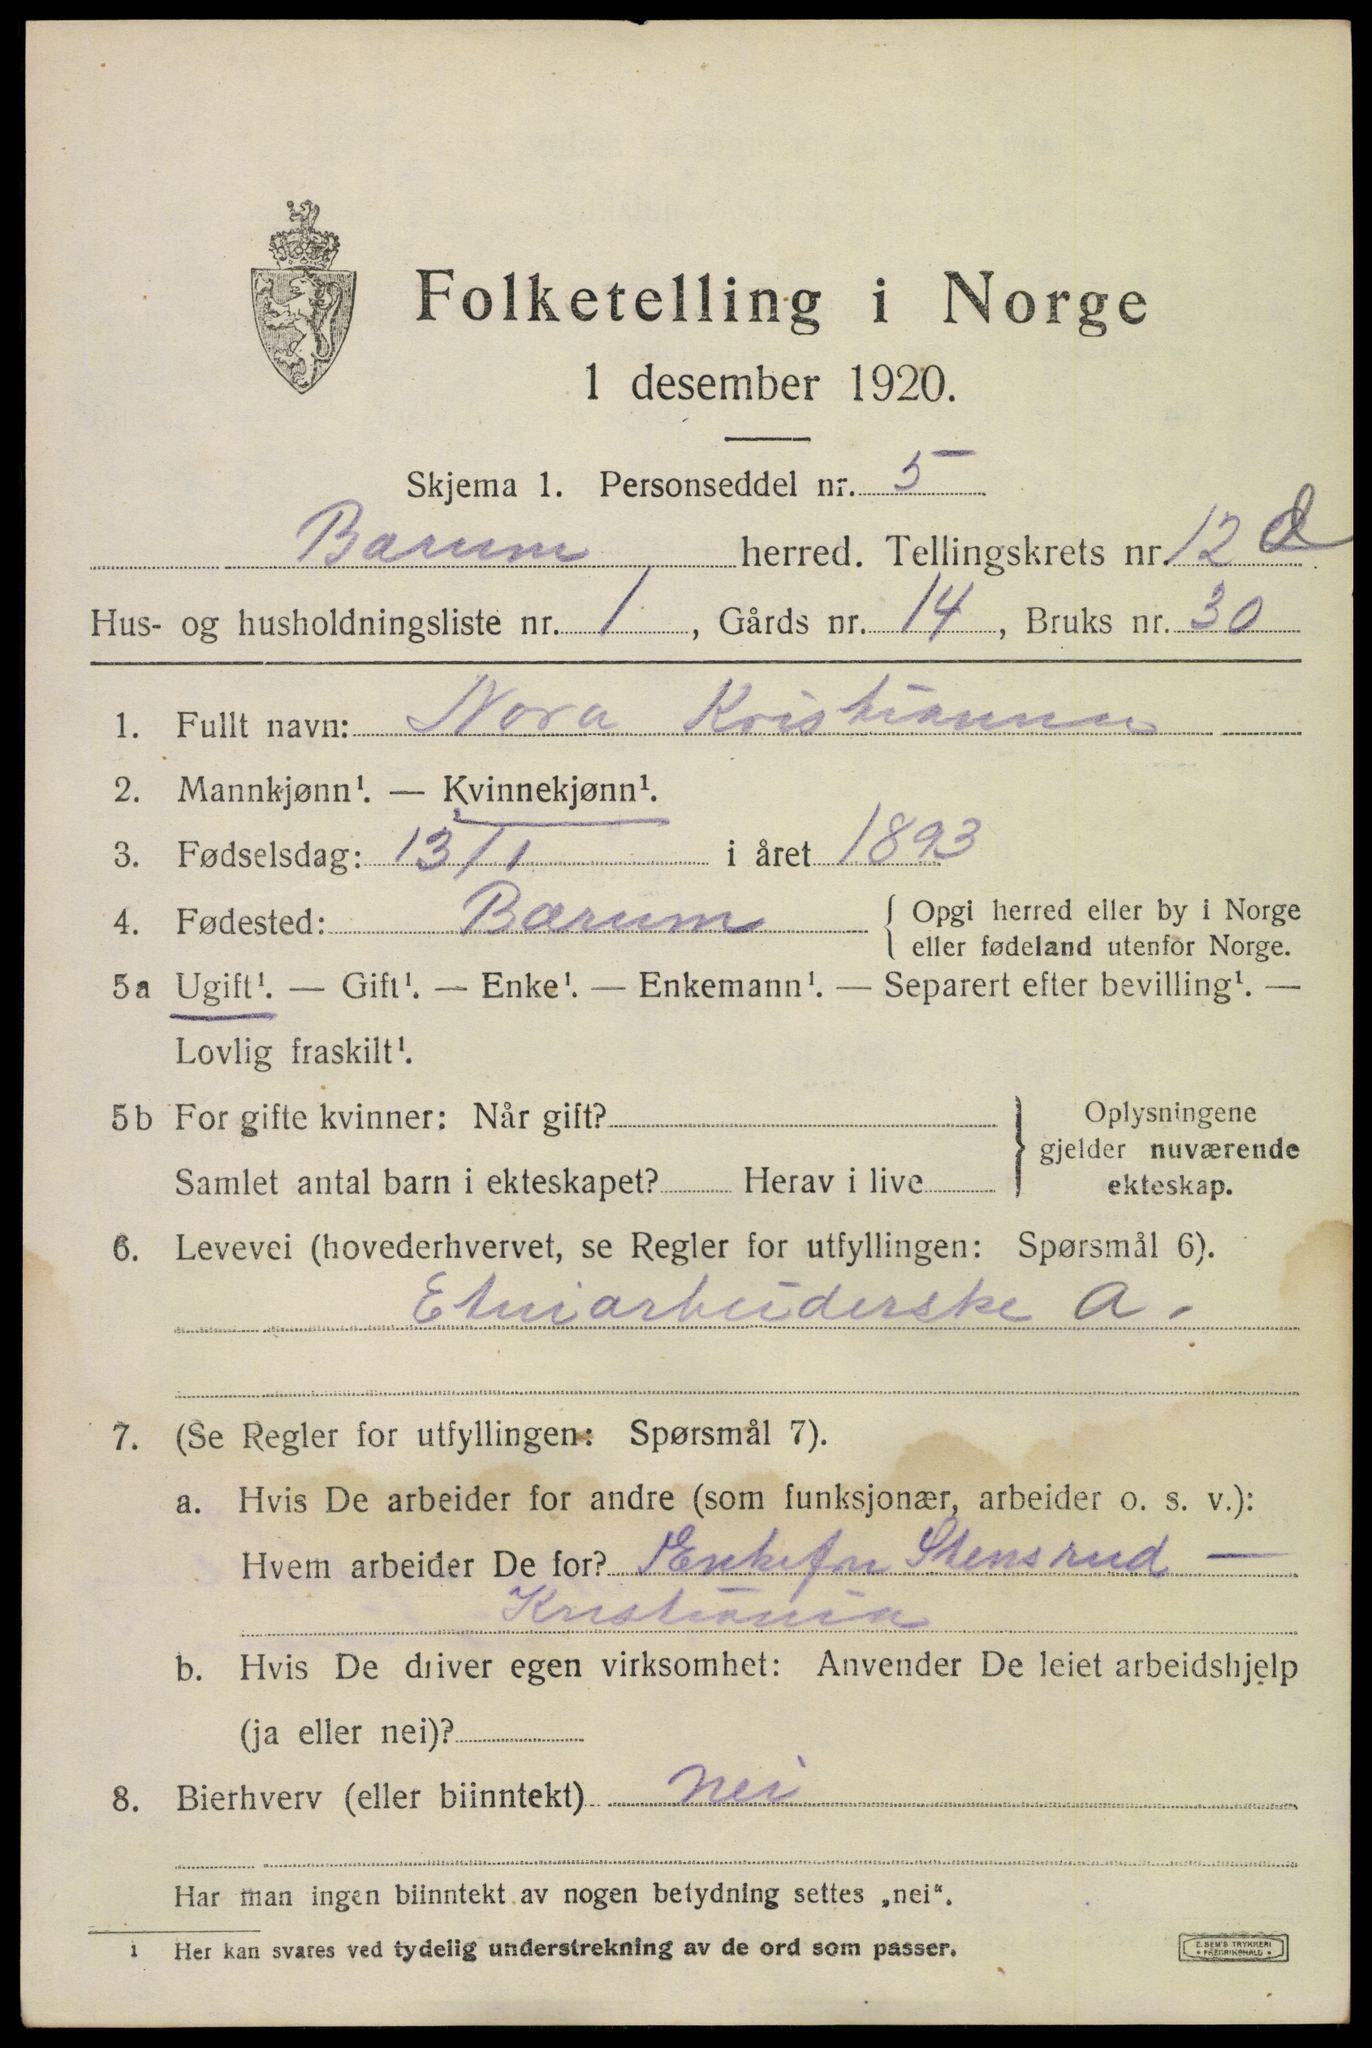 Folketelling i Norge
1 desember 1920.
Skjema 1. Personseddel nr. 5
Bærum herred. Tellingskrets nr. 12 d
Hus- og husholdningsliste nr. 1, Gårds nr. 14, Bruks nr. 30
1. Fullt navn: Nora Kristianna
2. Mannkjønn¹. — Kvinnekjønn¹.
3. Fødselsdag: 13/1 i året 1893
4. Fødested: Bærum { Opgi herred eller by i Norge
eller fødeland utenfor Norge.
5a Ugift¹. — Gift¹. — Enke¹. — Enkemann¹. — Separert efter bevilling¹. —
Lovlig fraskilt¹.
5b For gifte kvinner: Når gift?
Samlet antal barn i ekteskapet? Herav i live
} Oplysningene
gjelder nuværende
ekteskap.
6. Levevei (hovederhvervet, se Regler for utfyllingen: Spørsmål 6).
Etuiarbeiderske A.
7. (Se Regler for utfyllingen: Spørsmål 7).
a. Hvis De arbeider for andre (som funksjonær, arbeider o. s. v.):
Hvem arbeider De for? Enkefru Stensrud —
Kristiania
b. Hvis De driver egen virksomhet: Anvender De leiet arbeidshjelp
(ja eller nei)?
8. Bierhverv (eller biinntekt) nei
Har man ingen biinntekt av nogen betydning settes „nei“.
1 Her kan svares ved tydelig understrekning av de ord som passer.
E. SEM'S TRYKKERI
• FREDRIKSHALD •